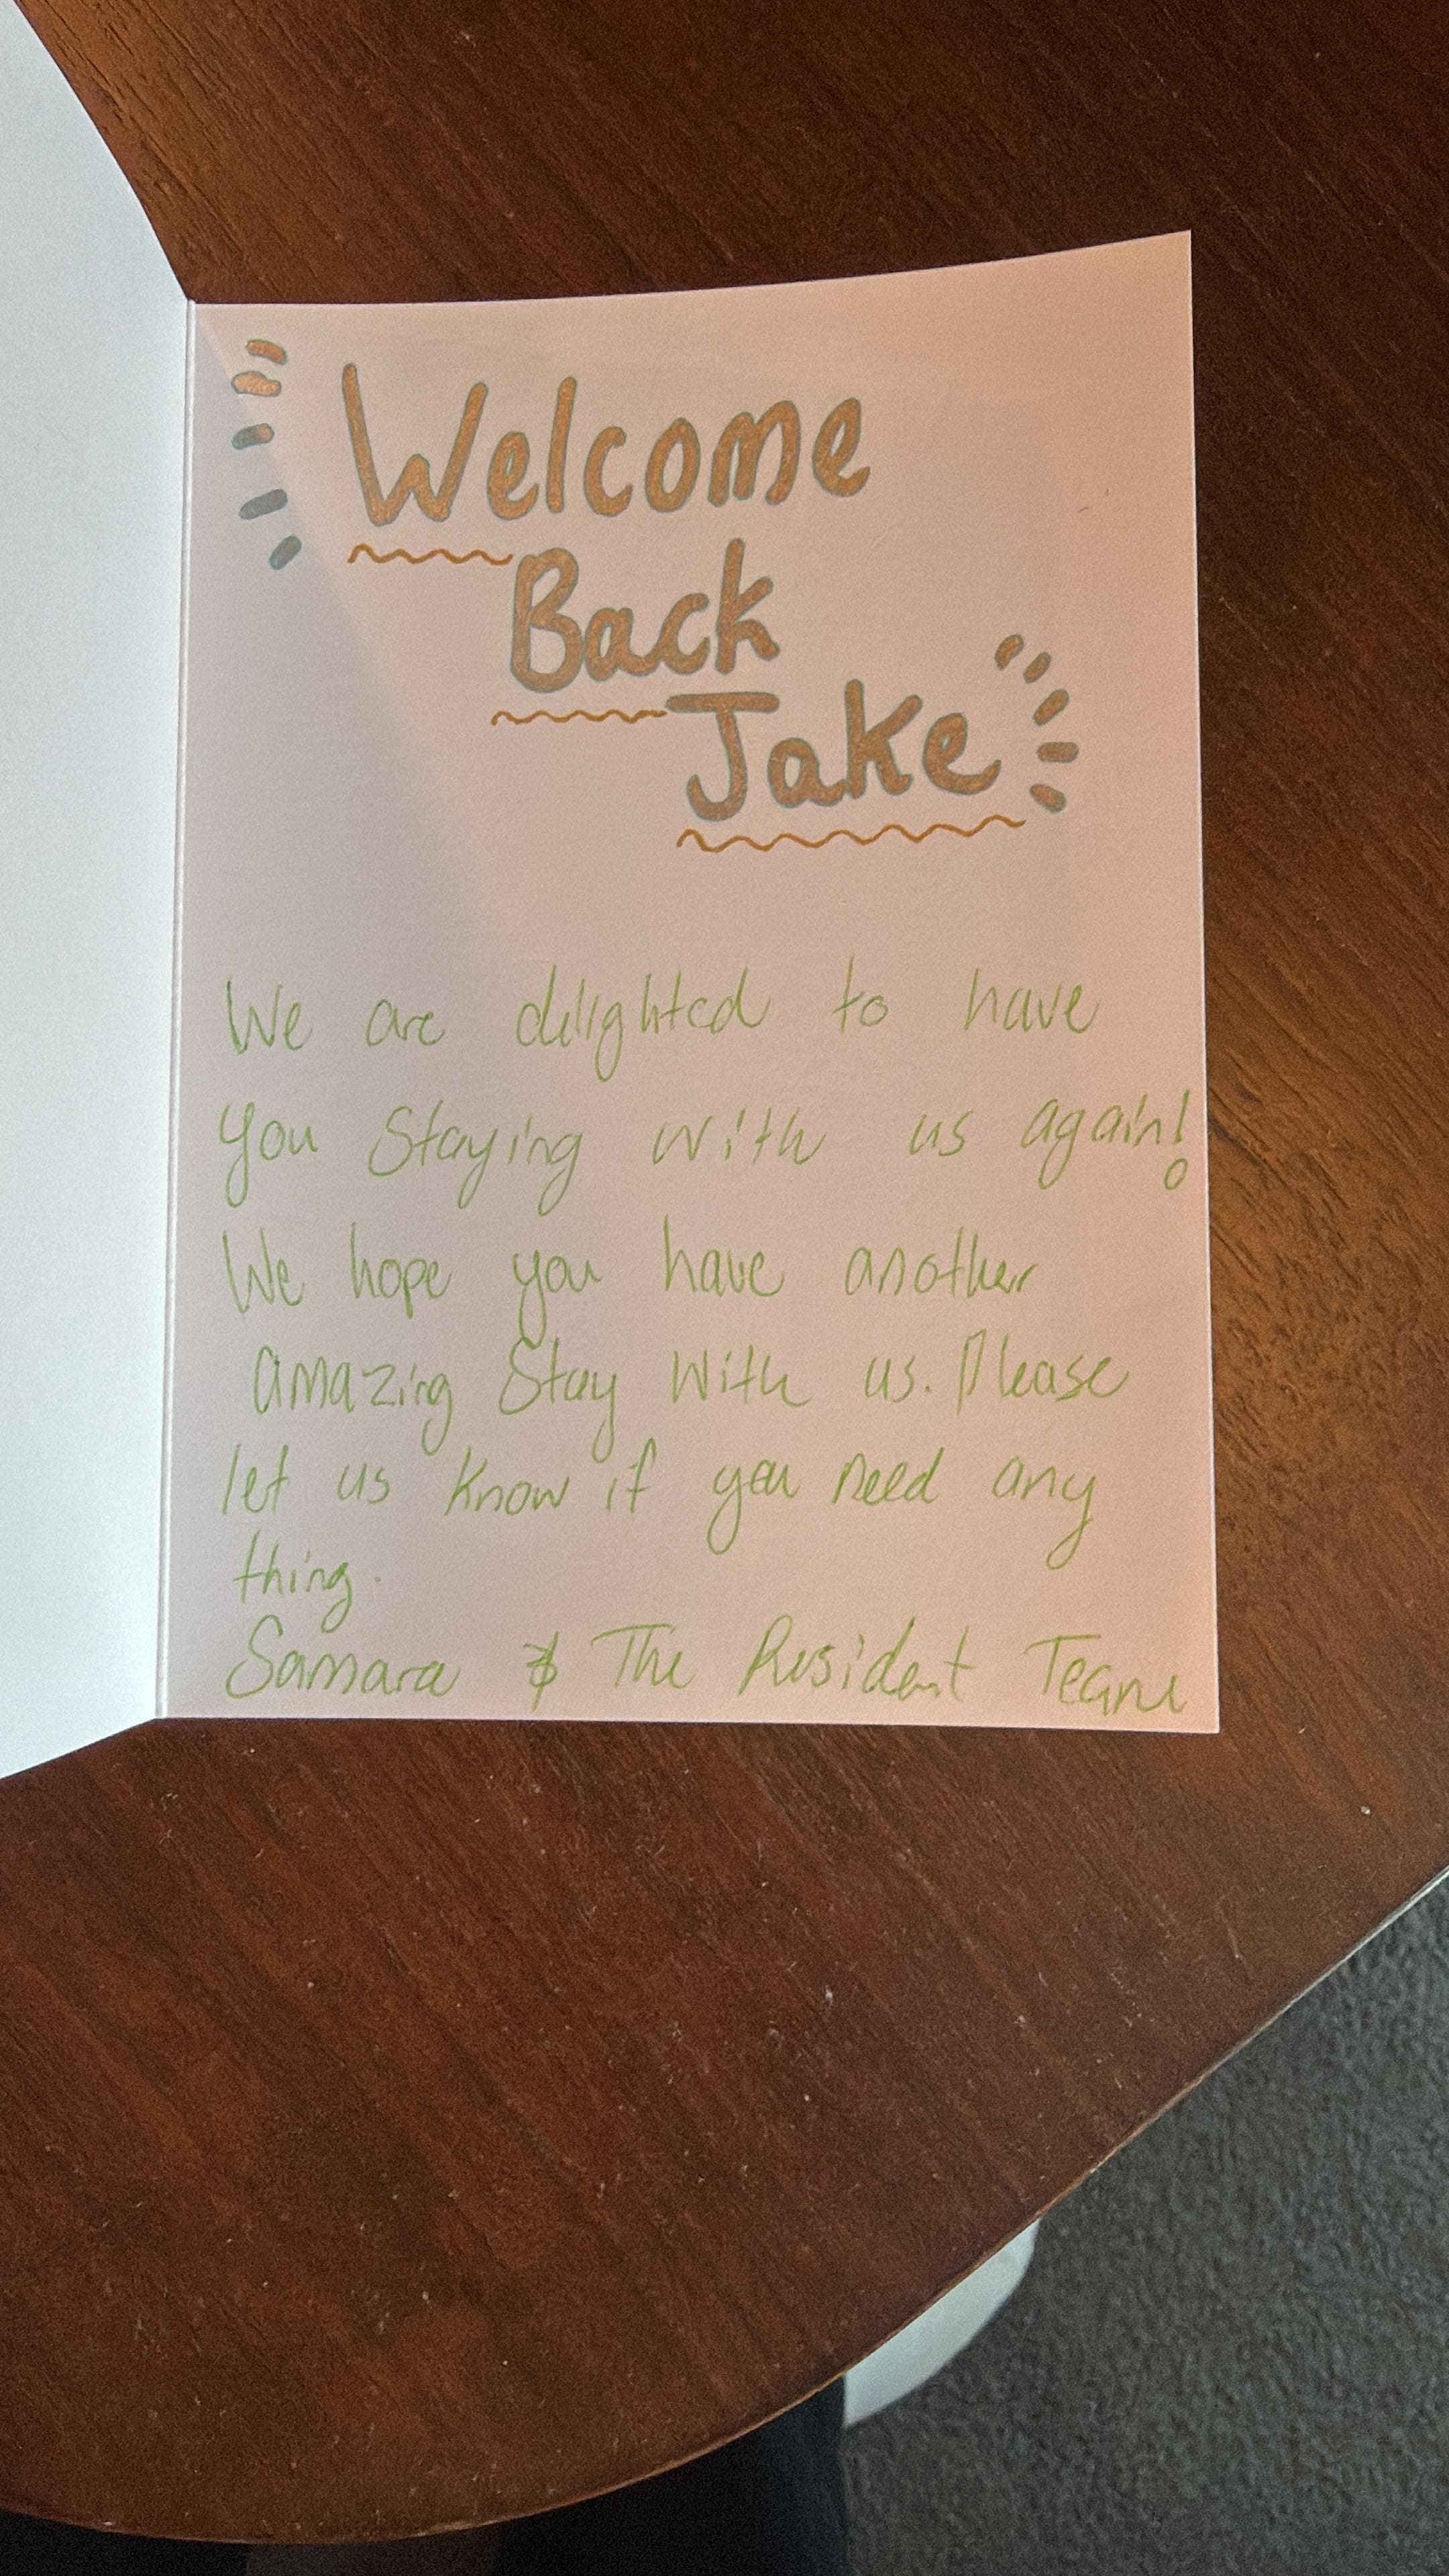 Welcome
Back
Jake
We are delighted to have
you staying with us again!
We hope you have another
amazing stay with us. Please
let us know if you need any
thing.
Samara & The Resident Team